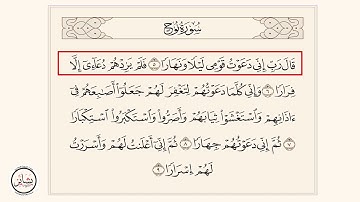 سُورَةُ نُوحٍ
قَالَ رَبِّ إِنِّى دَعَوْتُ قَوْمِى لَيْلًا وَنَهَارًا ۝٥ فَلَمْ يَزِدْهُمْ دُعَآءِىٓ إِلَّا
فِرَارًا ۝٦ وَإِنِّى كُلَّمَا دَعَوْتُهُمْ لِتَغْفِرَ لَهُمْ جَعَلُوٓا۟ أَصَٰبِعَهُمْ فِىٓ
ءَاذَانِهِمْ وَٱسْتَغْشَوْا۟ ثِيَابَهُمْ وَأَصَرُّوا۟ وَٱسْتَكْبَرُوا۟ ٱسْتِكْبَارًا
۝٧ ثُمَّ إِنِّى دَعَوْتُهُمْ جِهَارًا ۝٨ ثُمَّ إِنِّىٓ أَعْلَنتُ لَهُمْ وَأَسْرَرْتُ
لَهُمْ إِسْرَارًا ۝٩